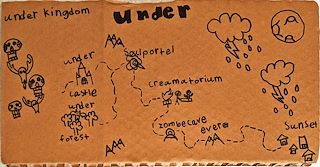 under kingdom
under
under
castle
under
forest
soulportel
creamatorium
zombecave
evere
Sunset